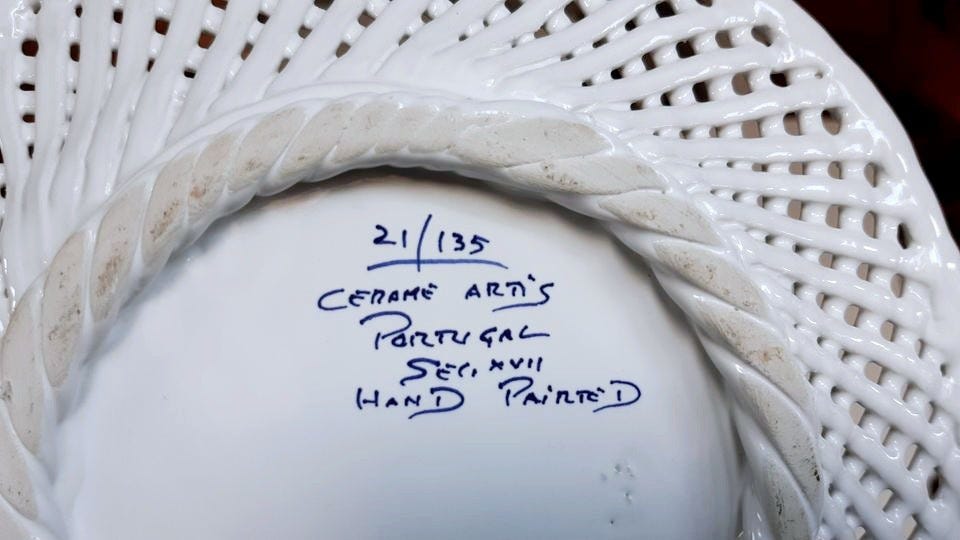 21/135
CERAME ARTIS
PORTUGAL
SEC. XVII
HAND PAINTED